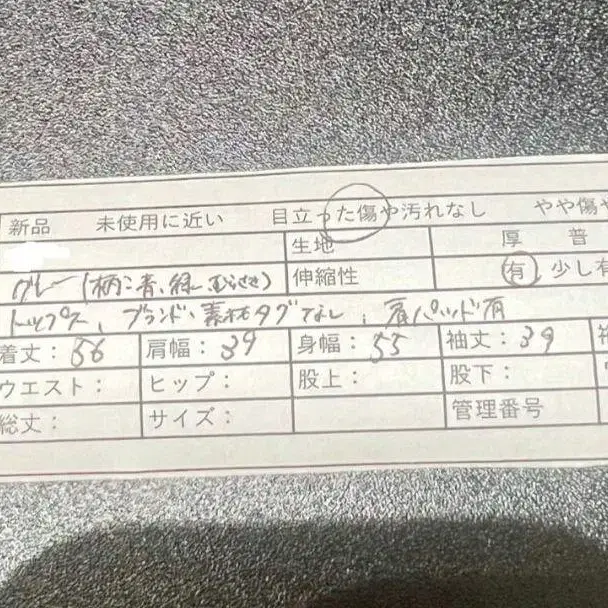 新品 未使用に近い 目立った傷や汚れなし やや傷や
生地 厚 普
グレー(柄に青、緑、むらさき) 伸縮性 有 少し有
トップス、ブランド・素材タグなし、肩パッド有
着丈:56 肩幅:39 身幅:55 袖丈:39
ウエスト: ヒップ: 股上: 股下:
総丈: サイズ: 管理番号